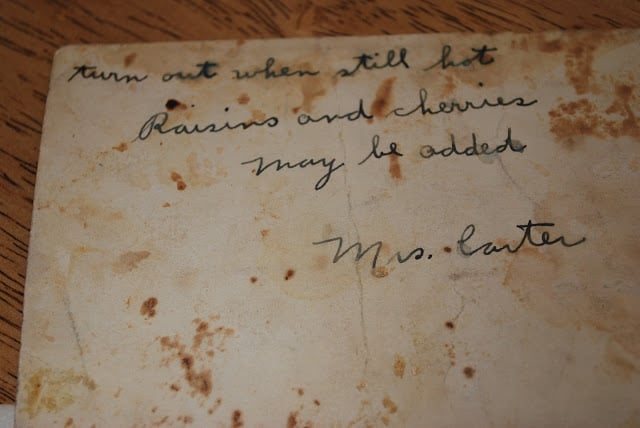 turn out when still hot
Raisins and cherries
may be added
Mrs. Carter